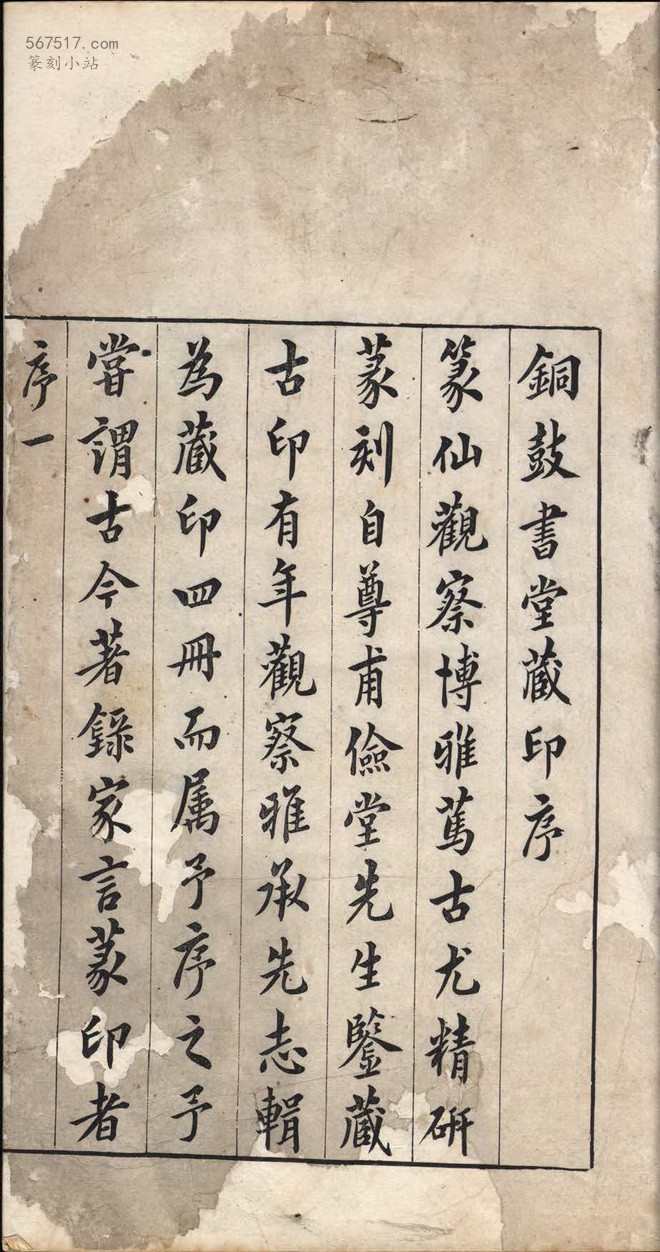 567517.com
篆刻小站
銅鼓書堂藏印序
篆仙觀察博雅篤古尤精研
篆刻自尊甫儉堂先生鑒藏
古印有年觀察雅承先志輯
為藏印四冊而属予序之予
嘗謂古今著錄家言篆印者
序一